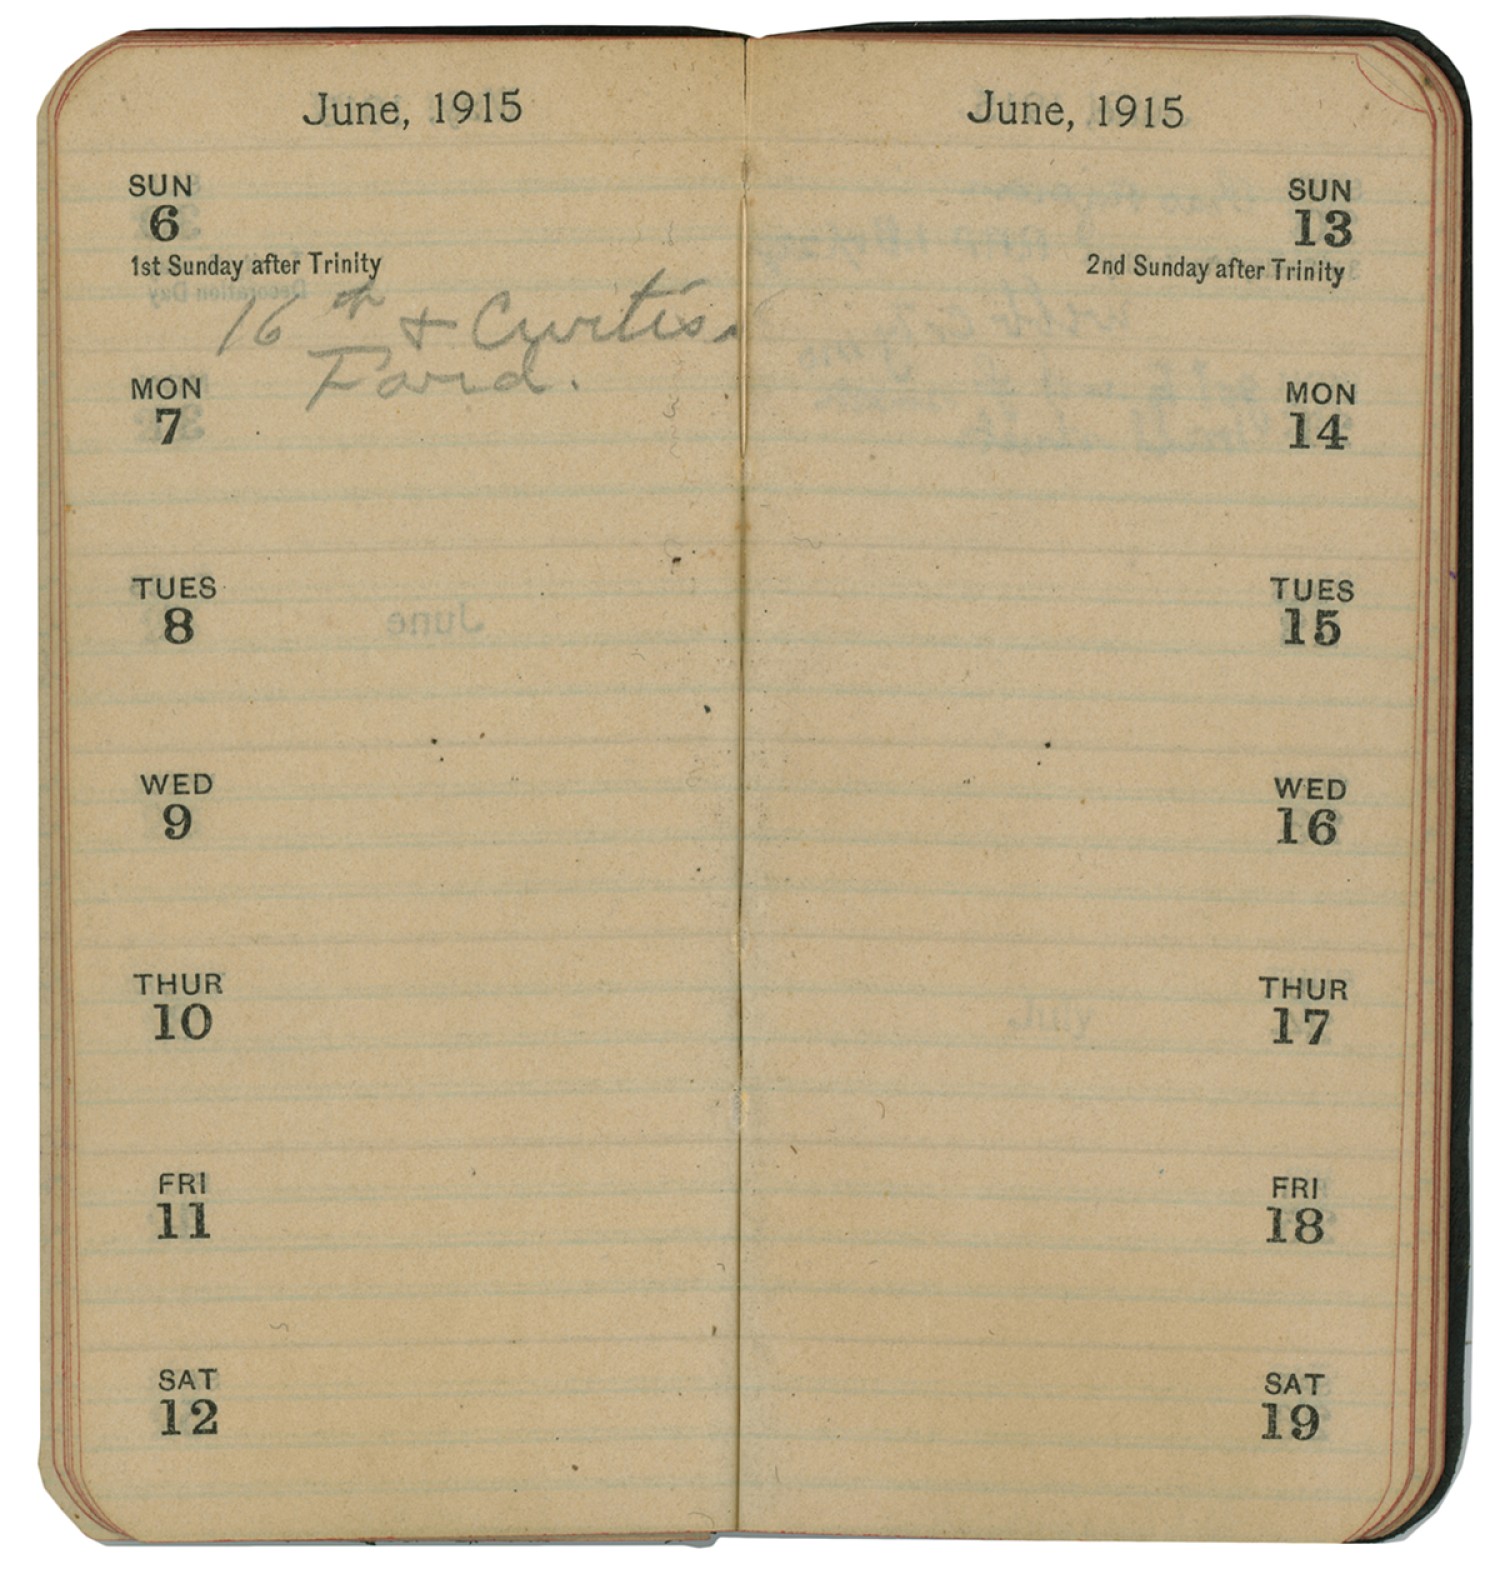 June, 1915
SUN
6
1st Sunday after Trinity
16th & Curtis.
Ford.
MON
7
TUES
8
WED
9
THUR
10
FRI
11
SAT
12
June, 1915
SUN
13
2nd Sunday after Trinity
MON
14
TUES
15
WED
16
THUR
17
FRI
18
SAT
19